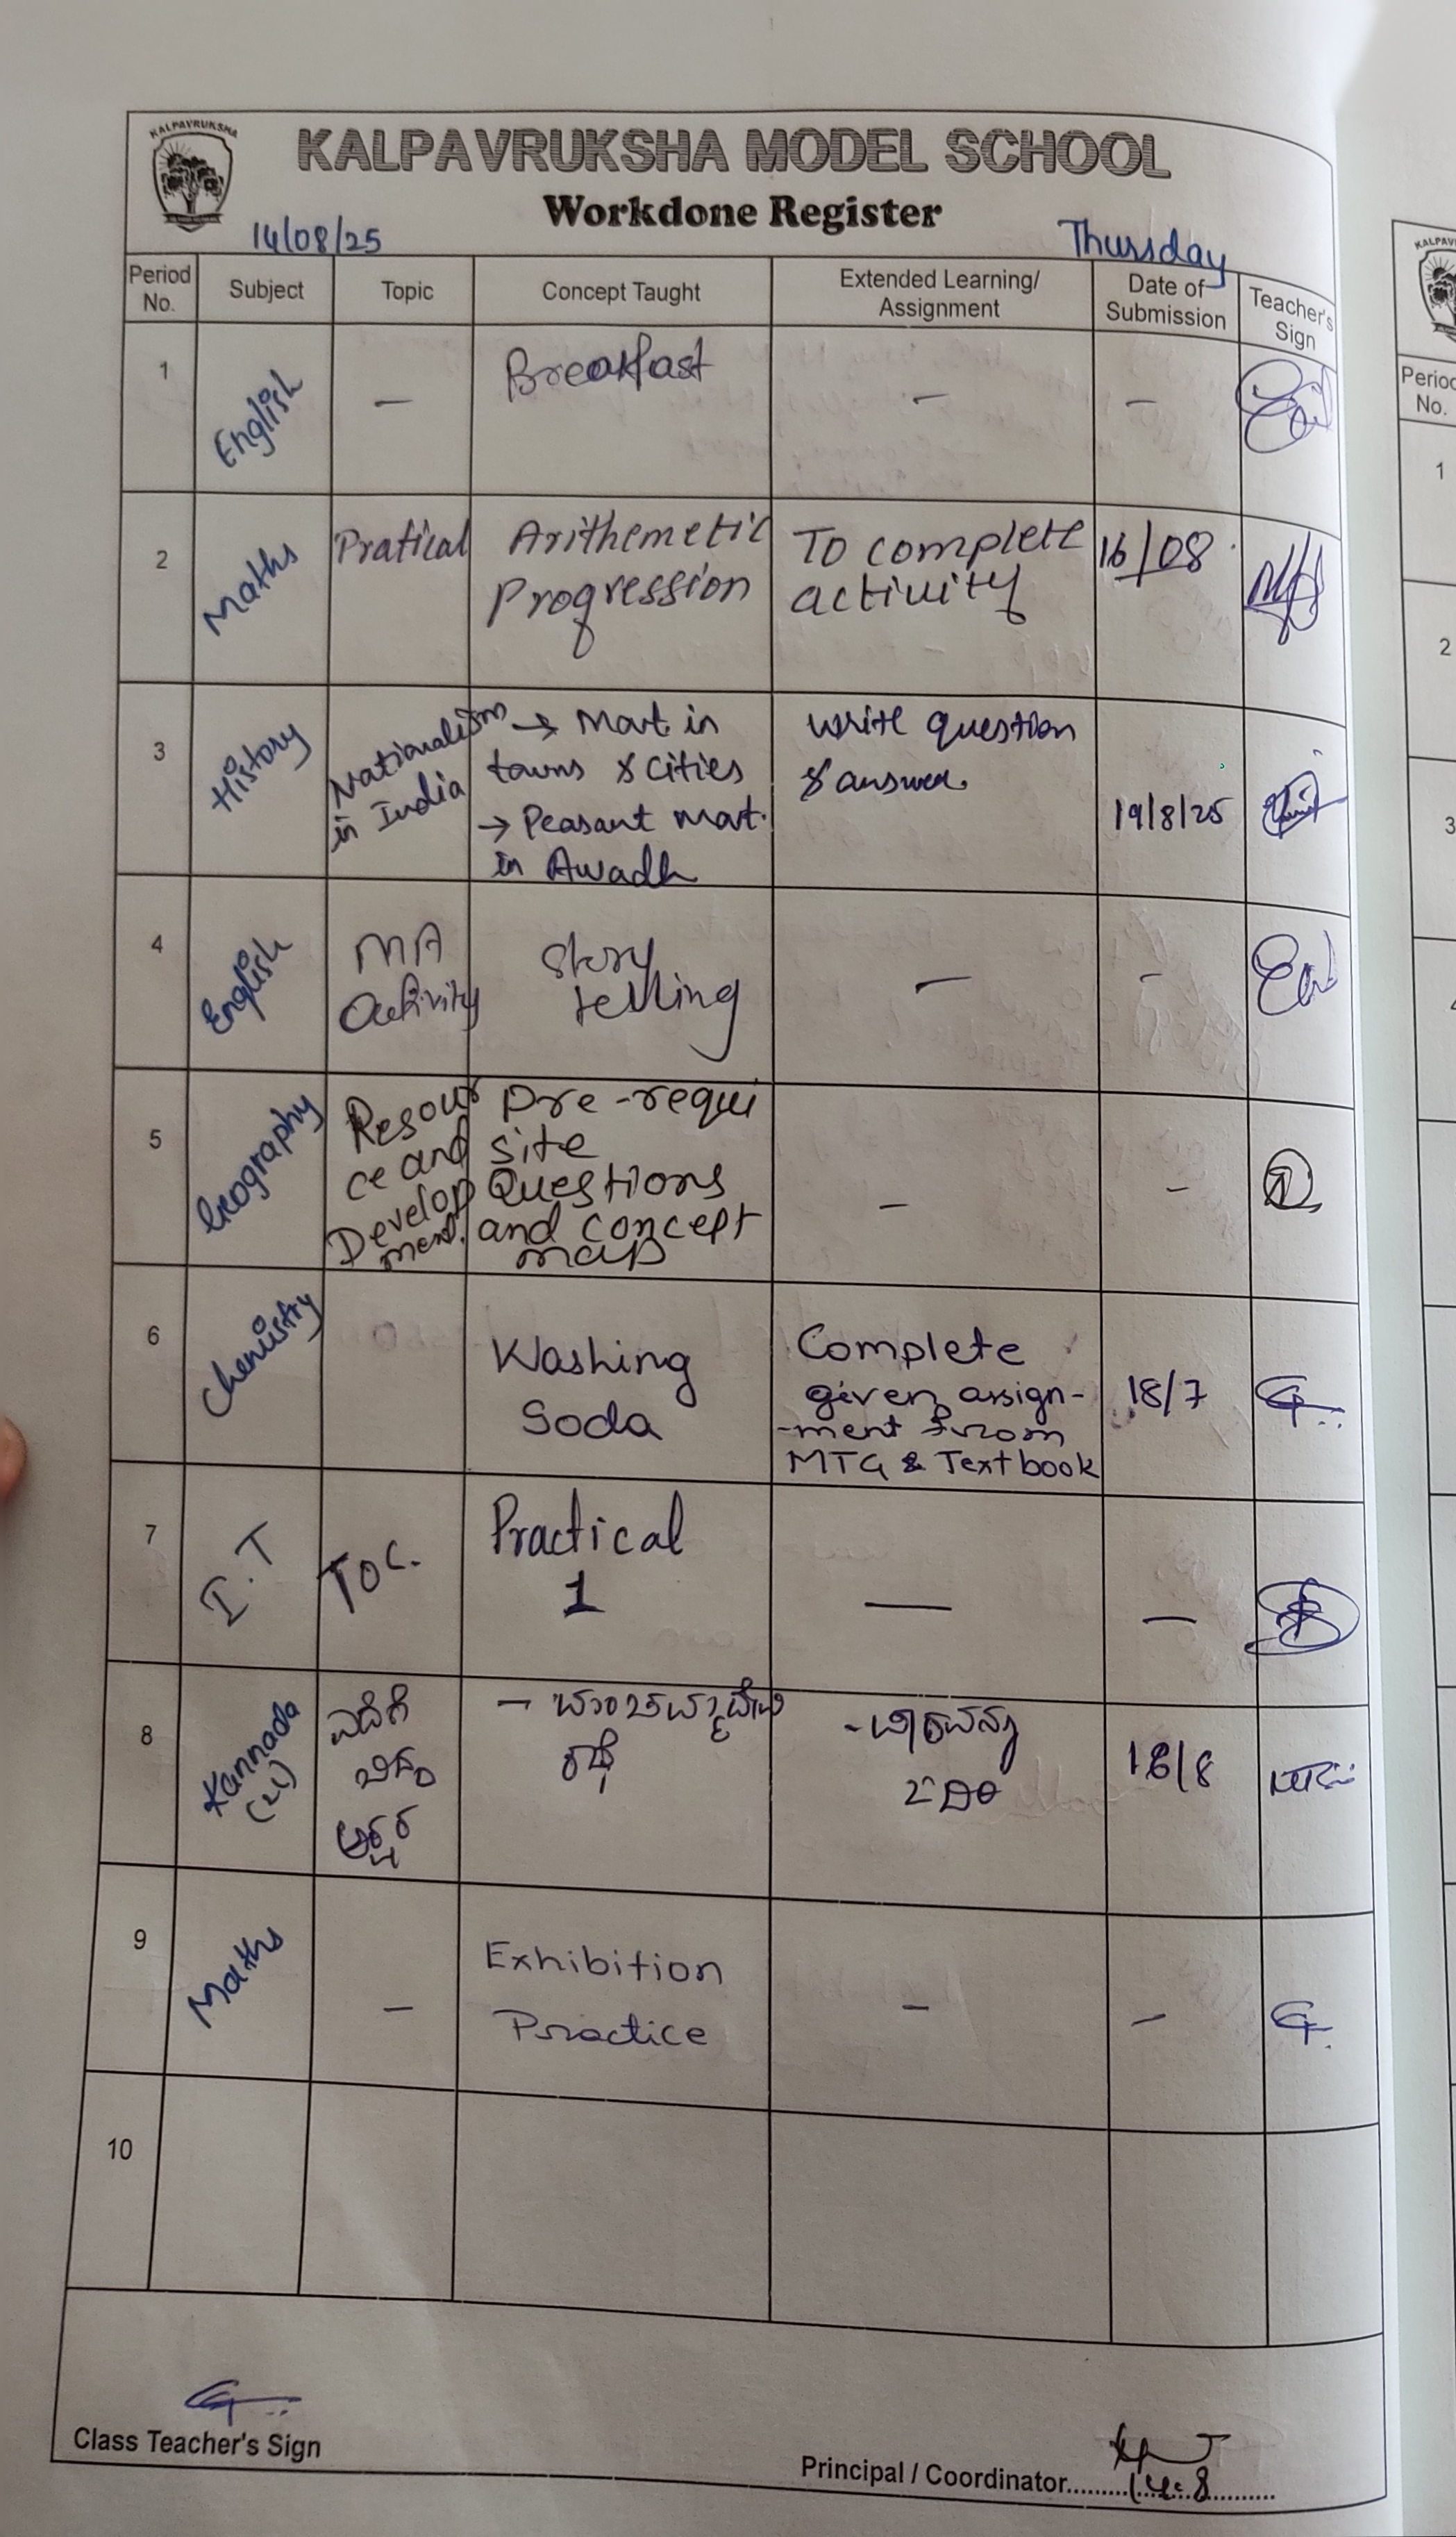 KALPAVRUKSHA
KALPAVRUKSHA MODEL SCHOOL
Workdone Register
14/08/25
Thursday
Period No.
Subject
Topic
Concept Taught
Extended Learning/
Assignment
Date of
Submission
Teacher's
Sign
1
English
—
Breakfast
—
—
2
Maths
Pratical
Arithemetic
Progression
To complete
activity
16/08
3
History
Nationalism
in India
→ Mov't in
towns & cities
→ Peasant mov't.
in Awadh
Write question
& answer.
19/8/25
4
English
MA
Activity
Story
telling
—
-
5
Geography
Resour
ce and
Develop
ment.
Pre-requi
site
Questions
and concept
map
—
-
6
Chemistry
Washing
Soda
Complete
given assign-
-ment from
MTG & Textbook
18/7
7
I.T
TOC.
Practical
1
—
—
8
Kannada
(2L)
ಎದೆಗೆ
ಬಿದ್ದ
ಅಕ್ಷರ
18/8
9
Maths
—
Exhibition
Practice
-
—
10
Class Teacher's Sign
Principal / Coordinator
14.8
KALPAV
Period
No.
1
2
3